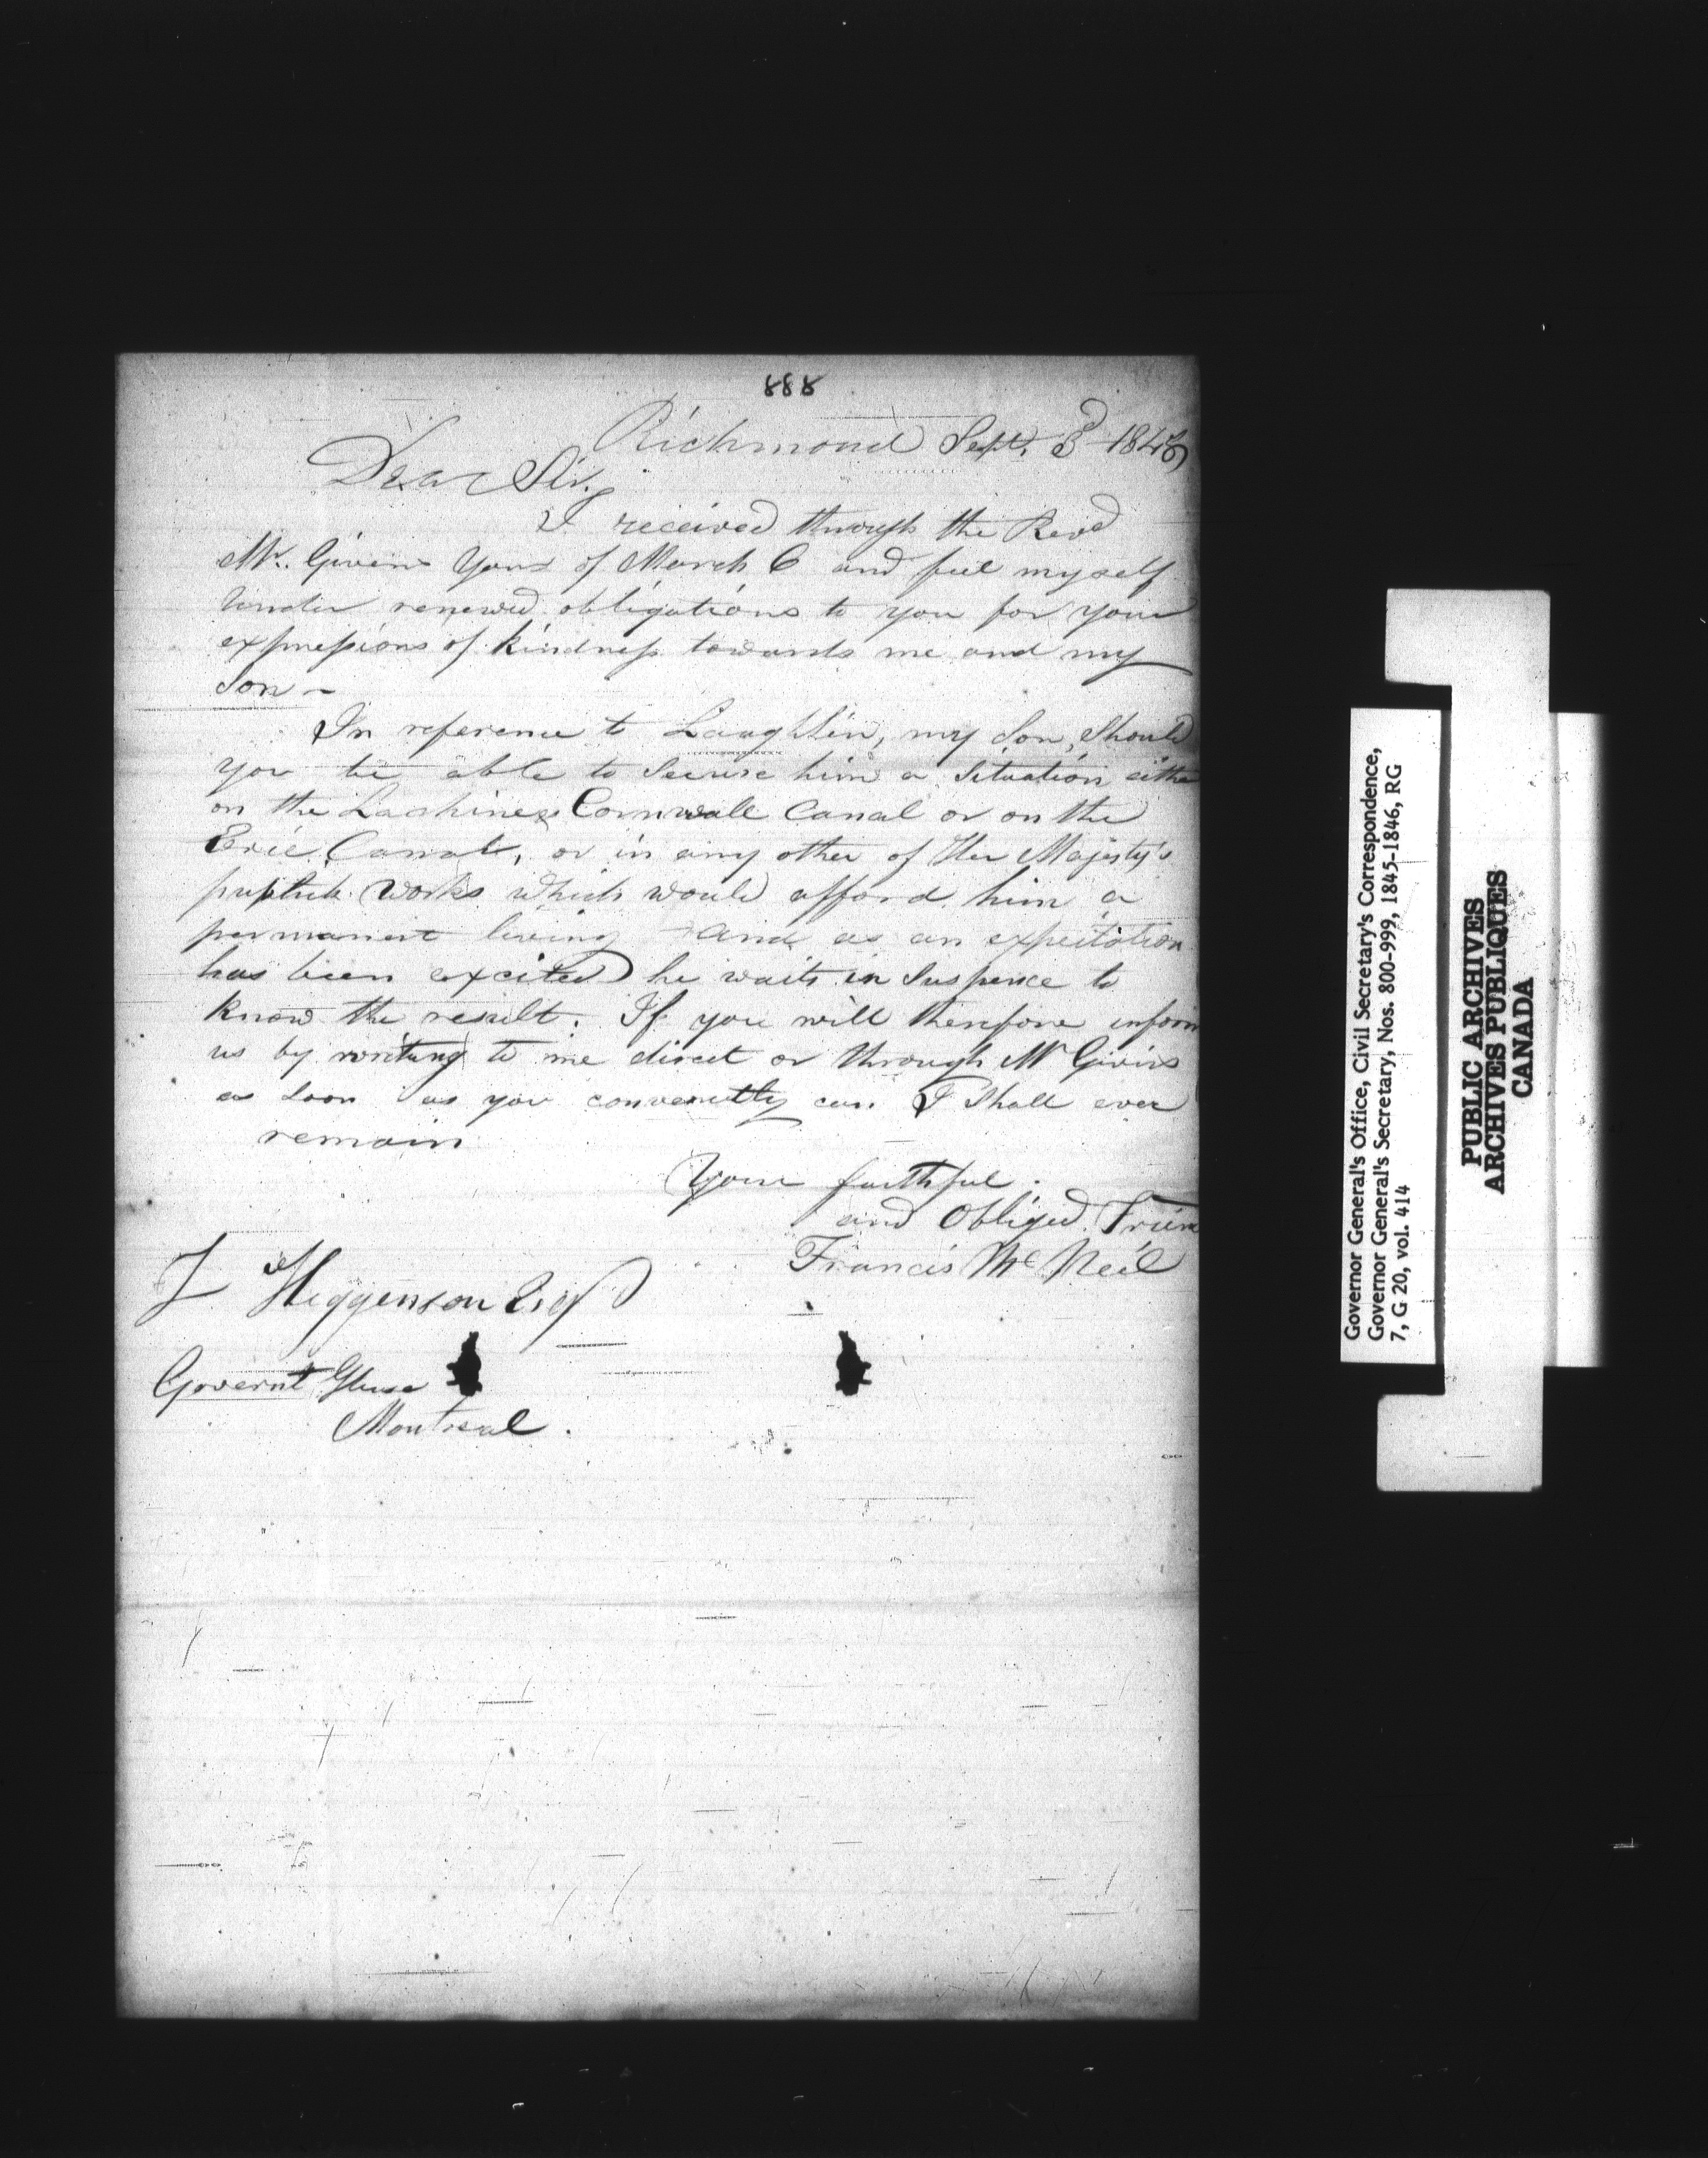 888
Richmond Sept. 3d 1845
Dear Sir,
I received through the Revd
Mr. Givens Yours of March 6 and feel myself
under renewed obligations to you for your
expressions of kindness towards me and my
Son -
In reference to Laughlin, my Son, Should
you be able to Secure him a Situation eithe
on the Lachine & Cornwall Canal or on the
Erie Canal, or in any other of Her Majesty's
publick works which would afford him a
permanent living and as an expectation
has been excited he waits in Suspence to
know the result. If you will therefore inform
us by writing to me direct or through Mr Givins
as Soon as you convenetly can I Shall ever
remain
Your faithful
and Obliged Frien
Francis Mc Neil
J Higgenson Esq
Governt House
Montreal.
Governor General's Office, Civil Secretary's Correspondence,
Governor General's Secretary, Nos. 800-999, 1845-1846, RG
7, G 20, vol. 414
PUBLIC ARCHIVES
ARCHIVES PUBLIQUES
CANADA